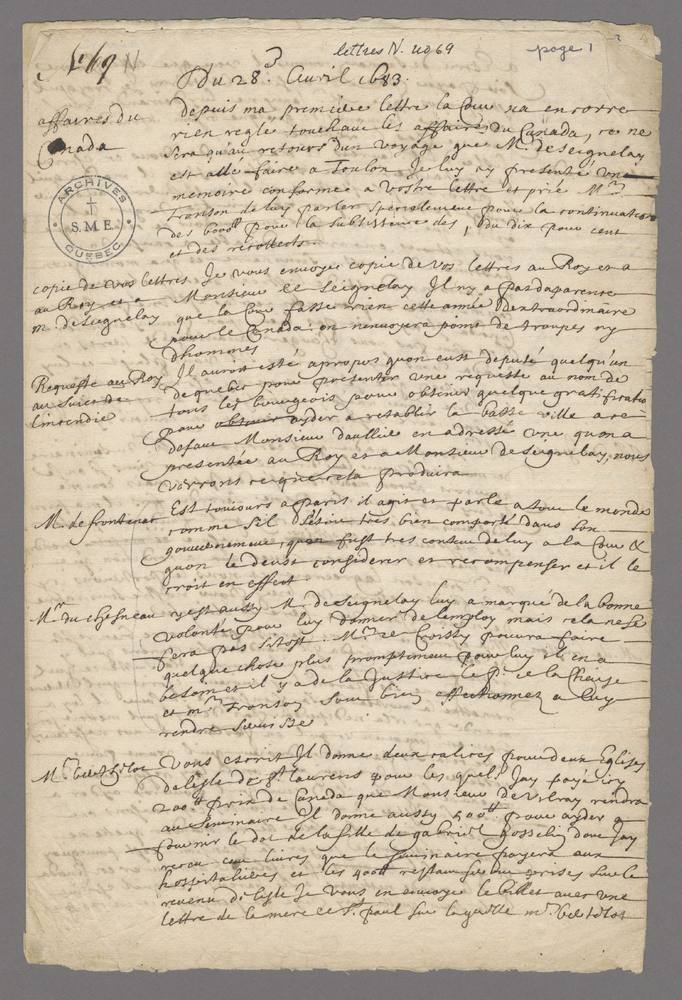 Nº 69
lettres N. no 69
page 1
Du 28. Avril 1683.
affaires du
Canada
ARCHIVES
S.M.E.
QUÉBEC
depuis ma premiere lettre la Cour na encorre
rien reglé touchant les affaires du Canada, ce ne
sera qu'au retours d'un voyage que Mr. de Seignelay
est allé faire a Toulon Je luy ay presenté une
memoire conforme a vostre lettre et prié Mr
tronson de luy parler specialement pour la continuation
des 6000tt pour la subsistence des , du dix pour cent
et des recollects.
copie de vos lettres
au Roy et a
m. de Seignelay
Je vous envoye copie de vos lettres au Roy et a
Monsieur de Seignelay Il ny a pas daparence
que la Cour fasse rien cette année Dextraordinaire
pour le Canada on nenvoyera point de troupes ny
dhommes
Requeste au Roy
au Suiet de
lincendie
Il auroit esté apropos quon eust deputé quelqu'un
de quebec pour presenter une requeste au nom de
tous les bourgeois pour obtenir quelque gratification
pour obtenir ayder a retablir la basse ville a ce
defaut Monsieur daullie en adressé une quon a
presentée au Roy et a Monsieur de Seignelay, nous
verrons ce que cela produira
M. de frontenac
Est toujours a paris il agit et parle a tout le monde
comme sil sestoit tres bien comporté dans son
gouvernement, quon fust tres content de luy a la Cour &
quon le deust considerer et recompenser et il le
croit en effect
Mr du chesneau
yest aussy M. de Seignelay luy a marqué de la bonne
volonté pour luy donner de lemploy mais cela ne se
fera pas sitost. Mr de Croissy pourra faire
quelque chose plus promptement pour luy il en a
besoin et il y a de la Justice le P. de la Chaise
et mr tronson sont bien affectionnez a luy
rendre service
Vous escrit Il donne deux calices pour deux Eglises
de lisle de St laurens pour les quels Jay payé icy
200tt prix de Canada que Monsieur de vilray rendra
au Seminaire Il donne aussy 500tt pour ayder a
fournir le dot de la fille de gabriel gosselin dont Jay
receu cent livres que le Seminaire payera aux
hospitalieres et les 400tt restant seront prises sur le
revenu de lisle Je vous en envoye le billet avec une
lettre de la mere de St. paul sur laquelle mr